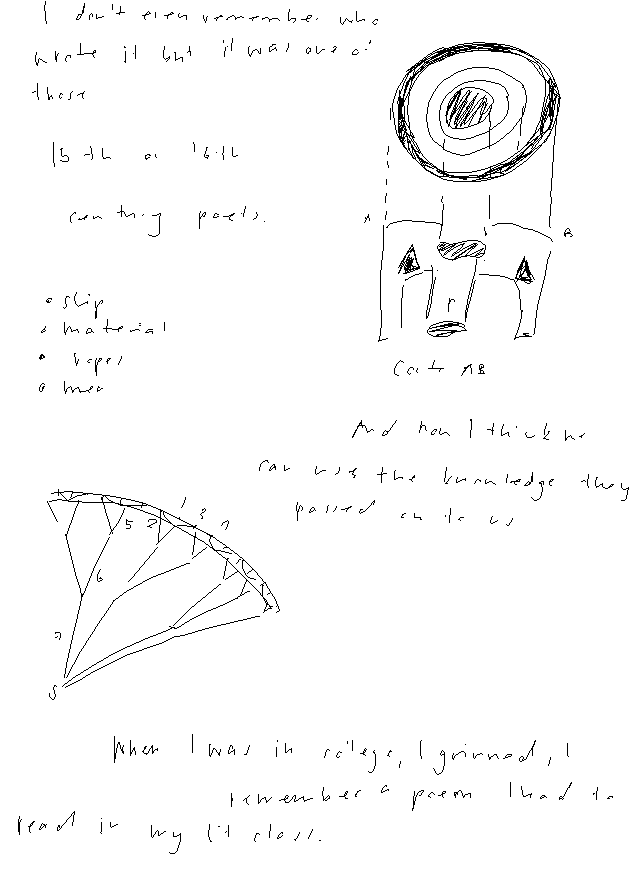 I don't even remember who
wrote it but it was one of
those
15th or 16th
century poets.
A
B
r
Coute AB
• slip
• material
• ropes
•
And now I think we
can use the knowledge they
passed on to us
1
5 2 3 7
6
7
S
When I was in college, I grinned, I
remember a poem I had to
read in my lit class.